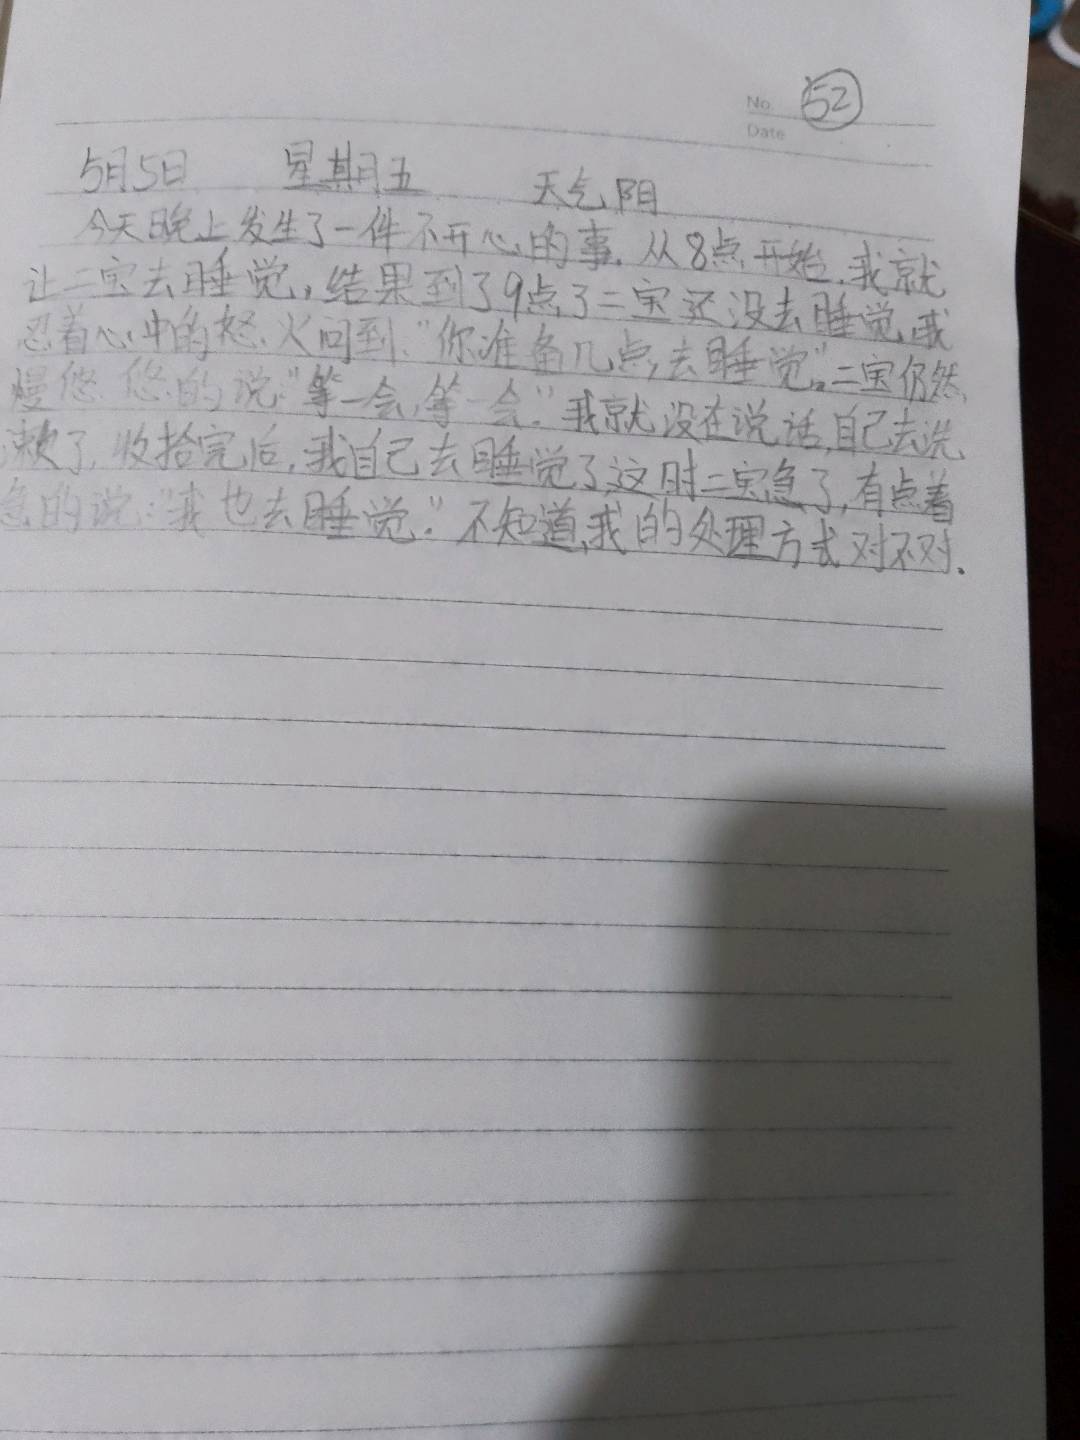 No. 52
Date
5月5日 星期五 天气阴
今天晚上发生了一件不开心的事.从8点开始,我就
让二宝去睡觉,结果到了9点了二宝还没去睡觉,我
忍着心中的怒火问到:"你准备几点去睡觉"。二宝仍然
慢悠悠的说:"等一会,等一会."我就没在说话,自己去洗
漱了,收拾完后,我自己去睡觉了,这时二宝急了,有点着
急的说:"我也去睡觉."不知道,我的处理方式对不对.